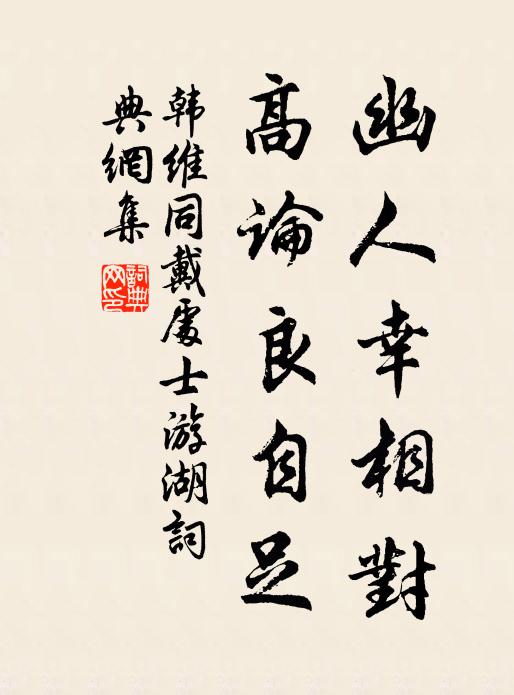 幽人幸相對
高論良自足
韩維同戴處士游湖詞
典網集
詞典网印